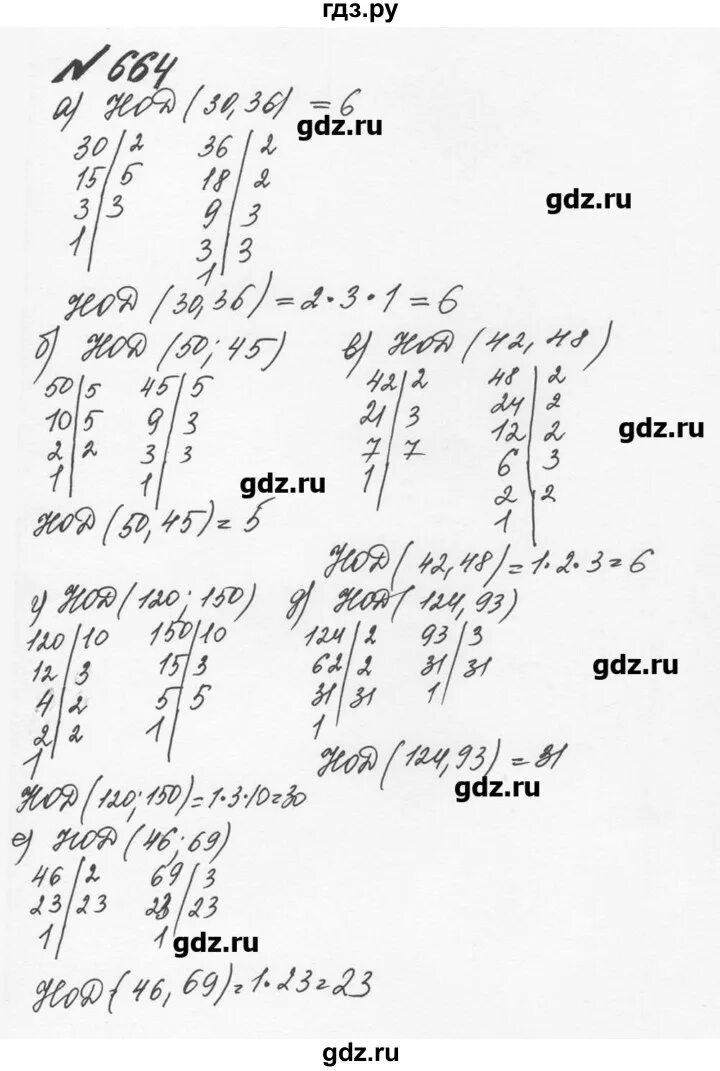 гдз.ру
№ 664
а) НОД (30,36) = 6
gdz.ru
30 | 2
15 | 5
3 | 3
1
36 | 2
18 | 2
9 | 3
3 | 3
1
gdz.ru
НОД (30,36) = 2·3·1 = 6
б) НОД (50; 45)
50 | 5
10 | 5
2 | 2
1
45 | 5
9 | 3
3 | 3
1
gdz.ru
НОД (50,45) = 5
в) НОД (42, 48)
42 | 2
21 | 3
7 | 7
1
48 | 2
24 | 2
12 | 2
6 | 3
2 | 2
1
gdz.ru
НОД (42,48) = 1·2·3 = 6
г) НОД (120; 150)
120 | 10
12 | 3
4 | 2
2 | 2
1
150 | 10
15 | 3
5 | 5
1
НОД (120; 150) = 1·3·10 = 30
д) НОД (124, 93)
124 | 2
62 | 2
31 | 31
1
93 | 3
31 | 31
1
gdz.ru
НОД (124, 93) = 31
gdz.ru
е) НОД (46; 69)
46 | 2
23 | 23
1
69 | 3
23 | 23
1
gdz.ru
НОД (46, 69) = 1·23 = 23
gdz.ru